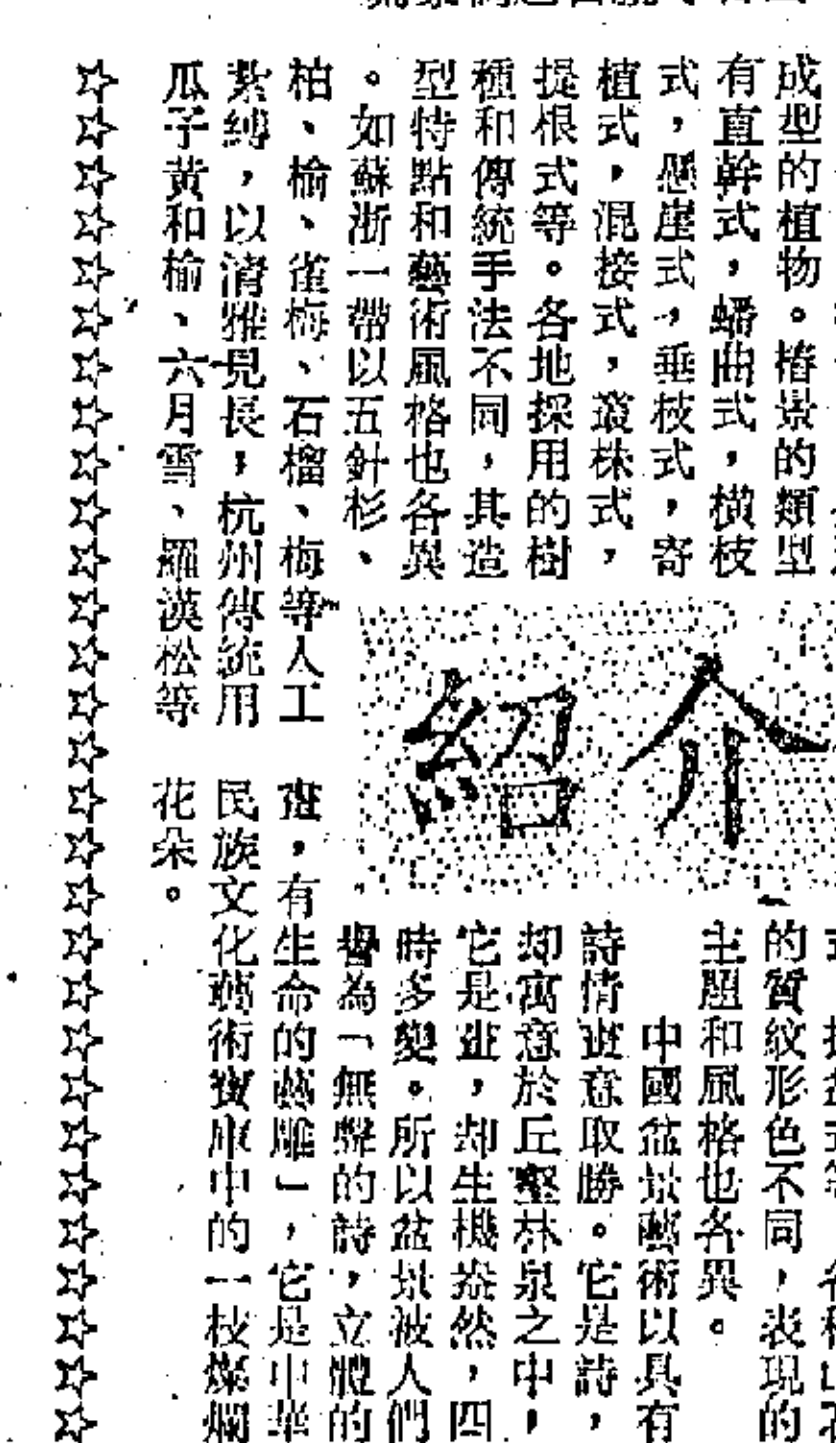 成型的植物。樁景的類型
有直幹式，蟠曲式，橫枝
式，懸崖式，垂枝式，寄
植式，混接式，叢株式，
提根式等。各地採用的樹
種和傳統手法不同，其造
型特點和藝術風格也各異
。如蘇浙一帶以五針杉、
柏、榆、雀梅、石榴、梅等人工
紮縛，以清雅見長，杭州傳統用
瓜子黃和榆、六月雪、羅漢松等
介紹
的質紋形色不同，表現的
主題和風格也各異。
中國盆景藝術以具有
詩情畫意取勝。它是詩，
却寓意於丘壑林泉之中，
它是畫，却生機盎然，四
時多變。所以盆景被人們
譽為「無聲的詩，立體的
畫，有生命的藝雕」，它是中華
民族文化藝術寶庫中的一枝燦爛
花朵。